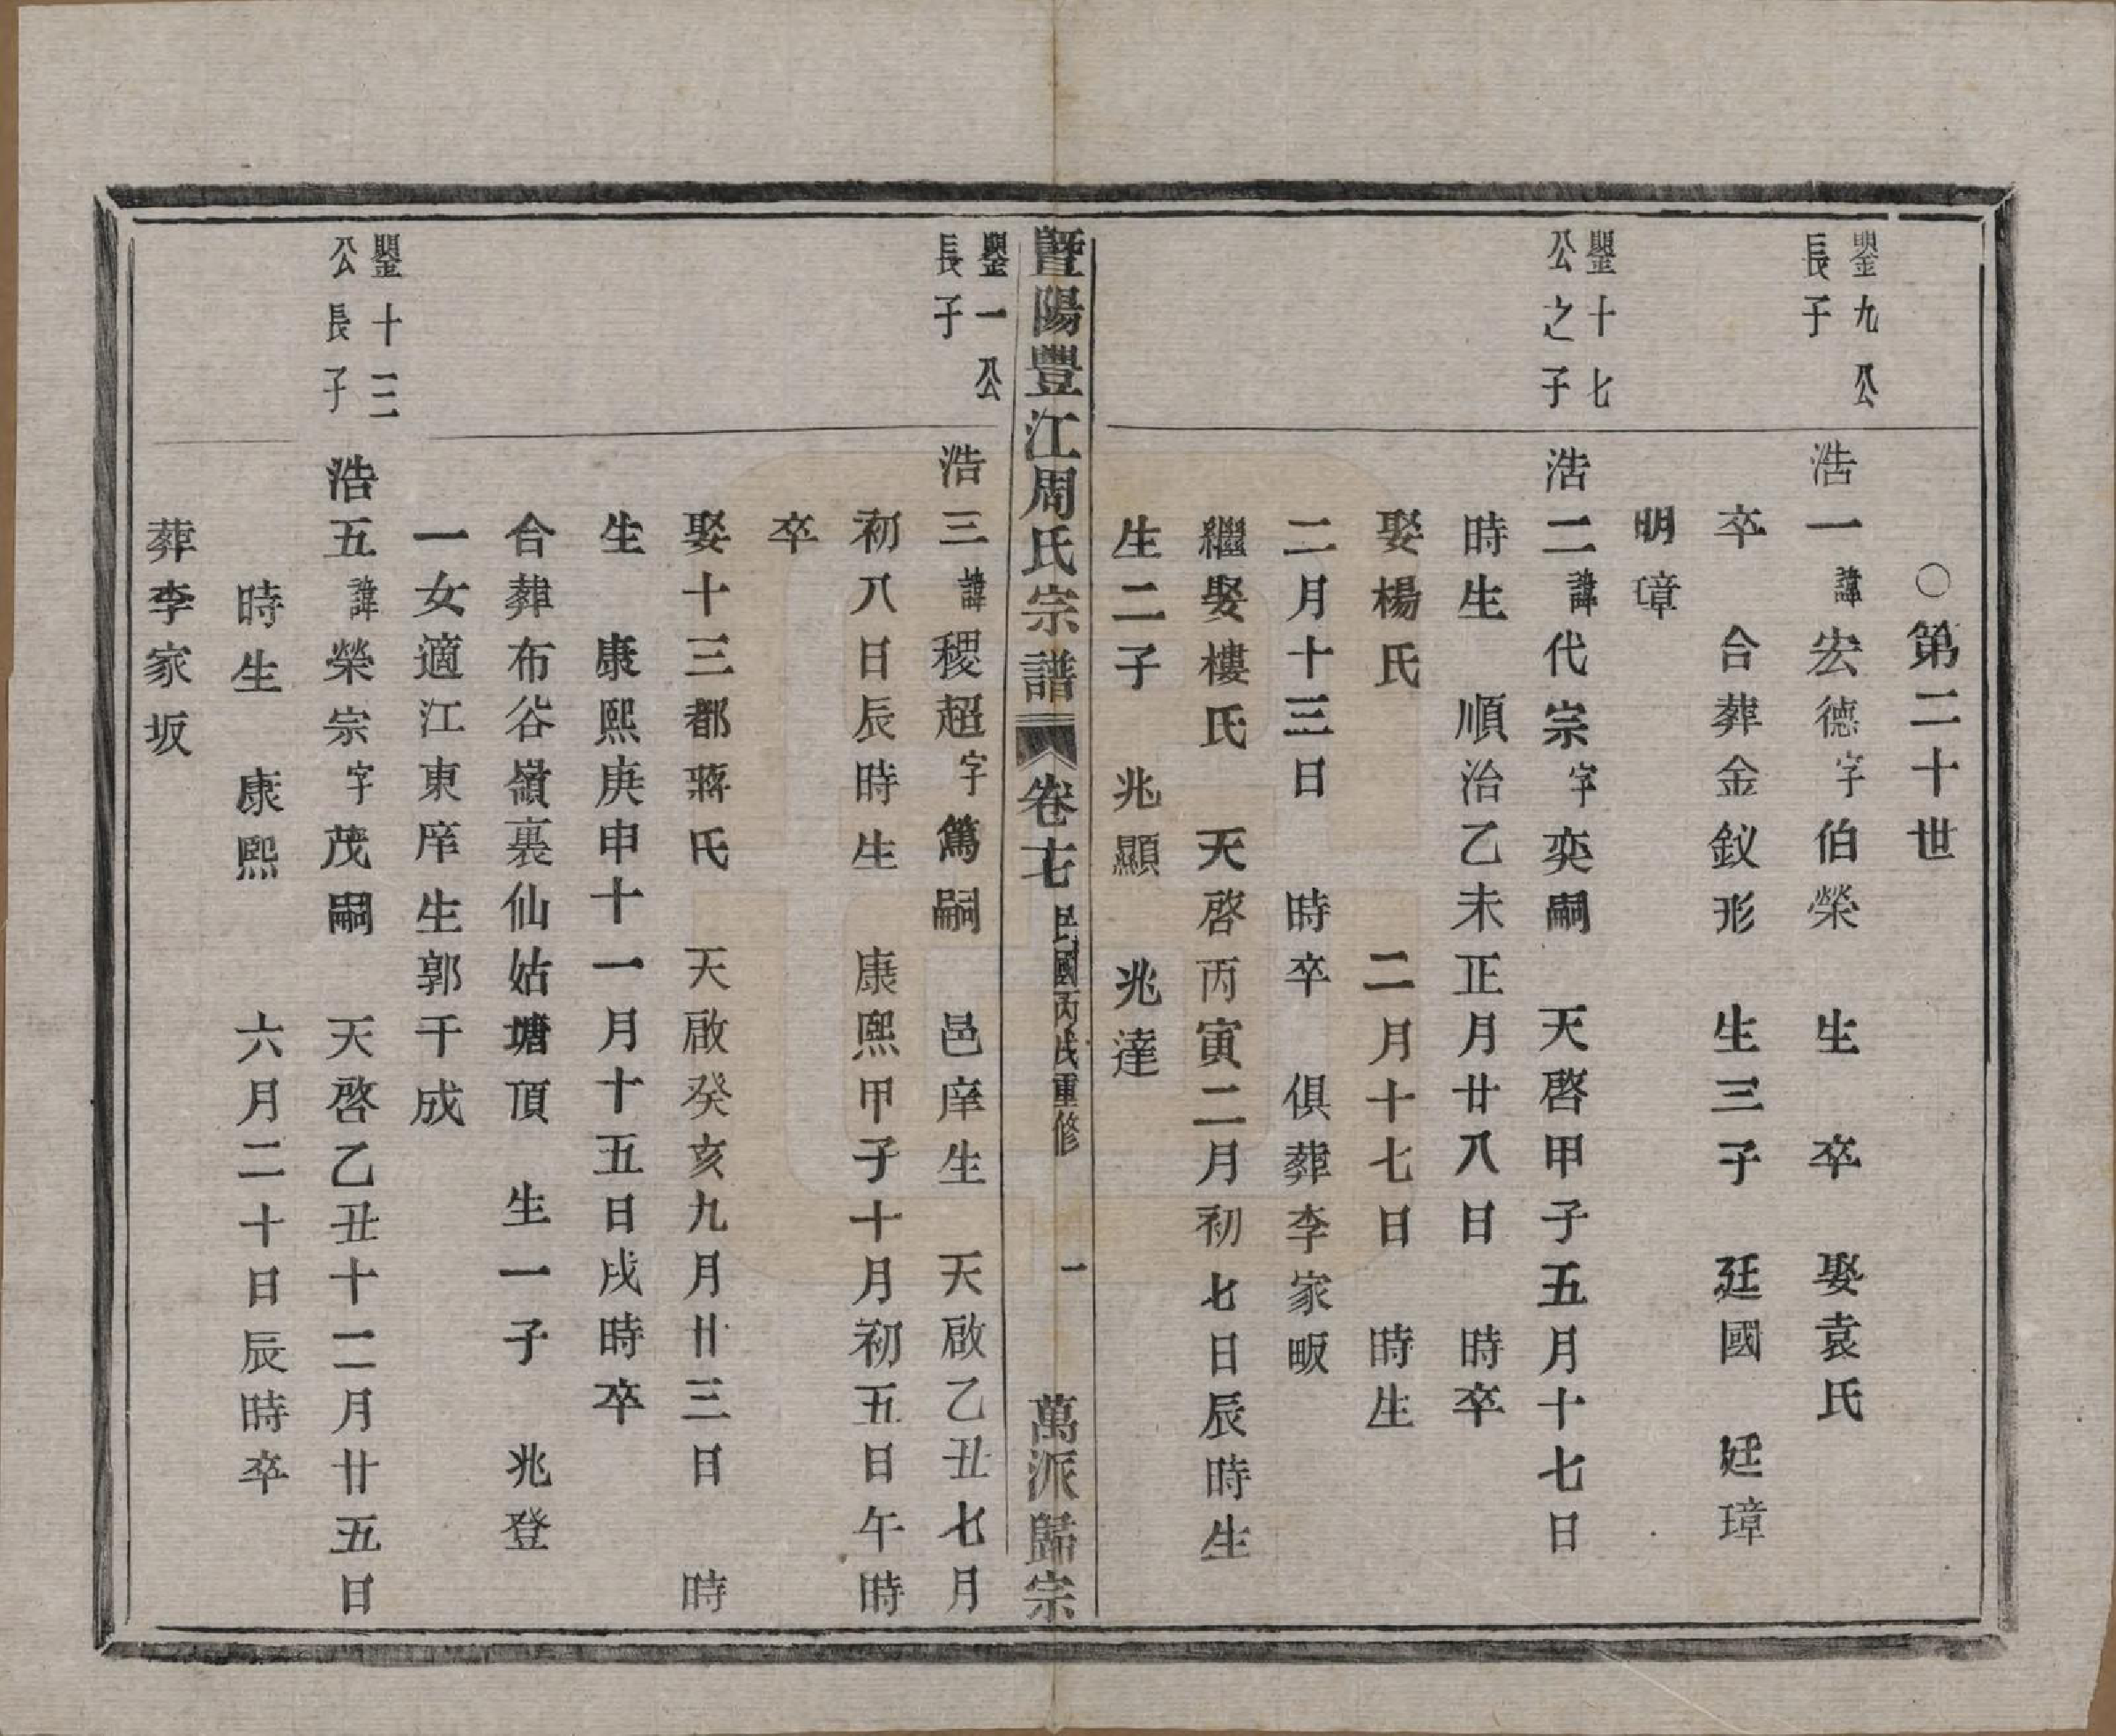 ○第二十世
鑍九公
長子
浩一諱宏德字伯榮　生　卒　娶袁氏
卒　合葬金釵形　生三子　廷國　廷璋
明璋
鑍十七
公之子
浩二諱代宗字奕嗣　天啓甲子五月十七日
時生　順治乙未正月廿八日　時卒
娶楊氏　二月十七日　時生
二月十三日　時卒　俱葬李家畈
繼娶樓氏　天啓丙寅二月初七日辰時生
生二子　兆顯　兆達
暨陽豐江周氏宗譜　卷七　民國丙戌重修　一　萬派歸宗
鑍一公
長子
浩三諱稷超字篤嗣　邑庠生　天啟乙丑七月
初八日辰時生　康熙甲子十月初五日午時
卒
娶十三都蔣氏　天啟癸亥九月廿三日　時
生　康熙庚申十一月十五日戌時卒
合葬布谷嶺裏仙姑塘頂　生一子　兆登
一女適江東庠生郭干成
鑍十三
公長子
浩五諱榮宗字茂嗣　天啓乙丑十二月廿五日
時生　康熙　六月二十日辰時卒
葬李家坂